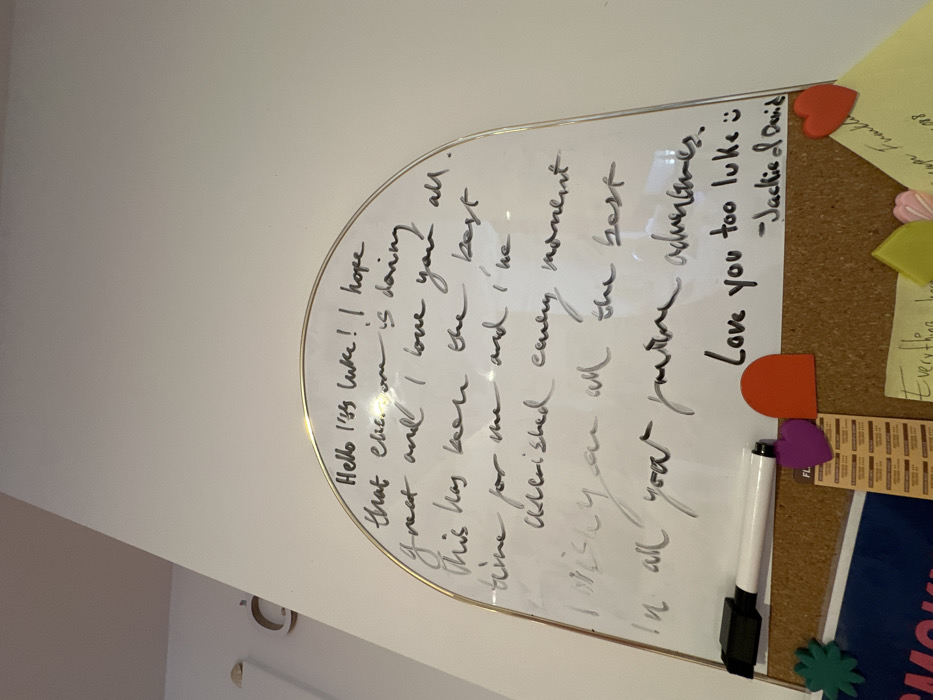 Hello It's Luke! I hope
that everyone is doing
great and I love you all.
This has been the best
time for me and I've
cherished every moment
I wish you all the best
In all your future adventures.
Love you too Luke :)
- Jackie & David
Everything